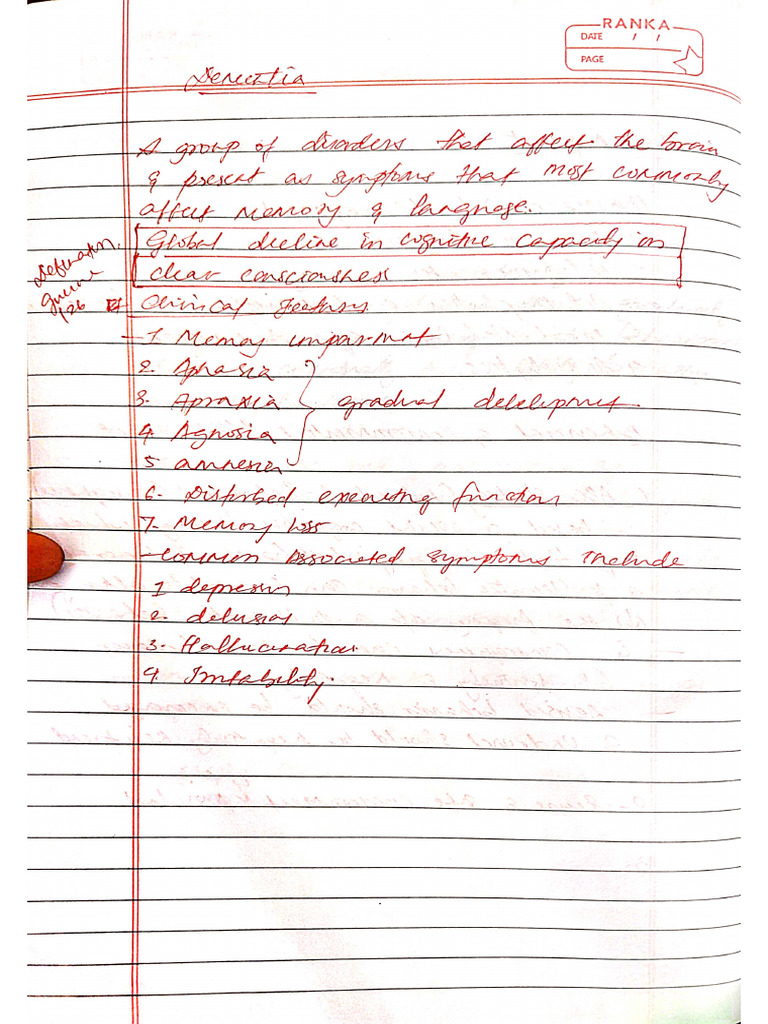 RANKA
DATE / /
PAGE
Dementia
A group of disorders that affect the brain
& present as symptoms that most commonly
affect memory & language.
Global decline in cognitive capacity in
clear consciousness
Defination
126
Clinical features
- 1. Memory impairmat
2. Aphasia
3. Apraxia
gradual development.
4. Agnosia
5. amnesia
6. Disturbed executing function
7. Memory loss
- common associated symptoms include
1 depression
2. delusions
3. Hallucination.
4. Irritability.